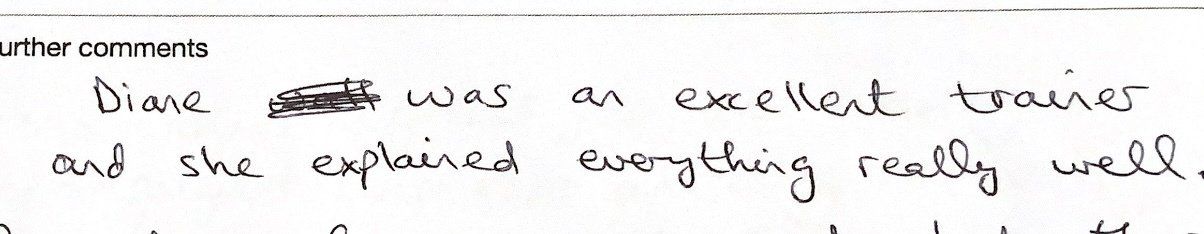 urther comments
Diane was an excellent trainer
and she explained everything really well.